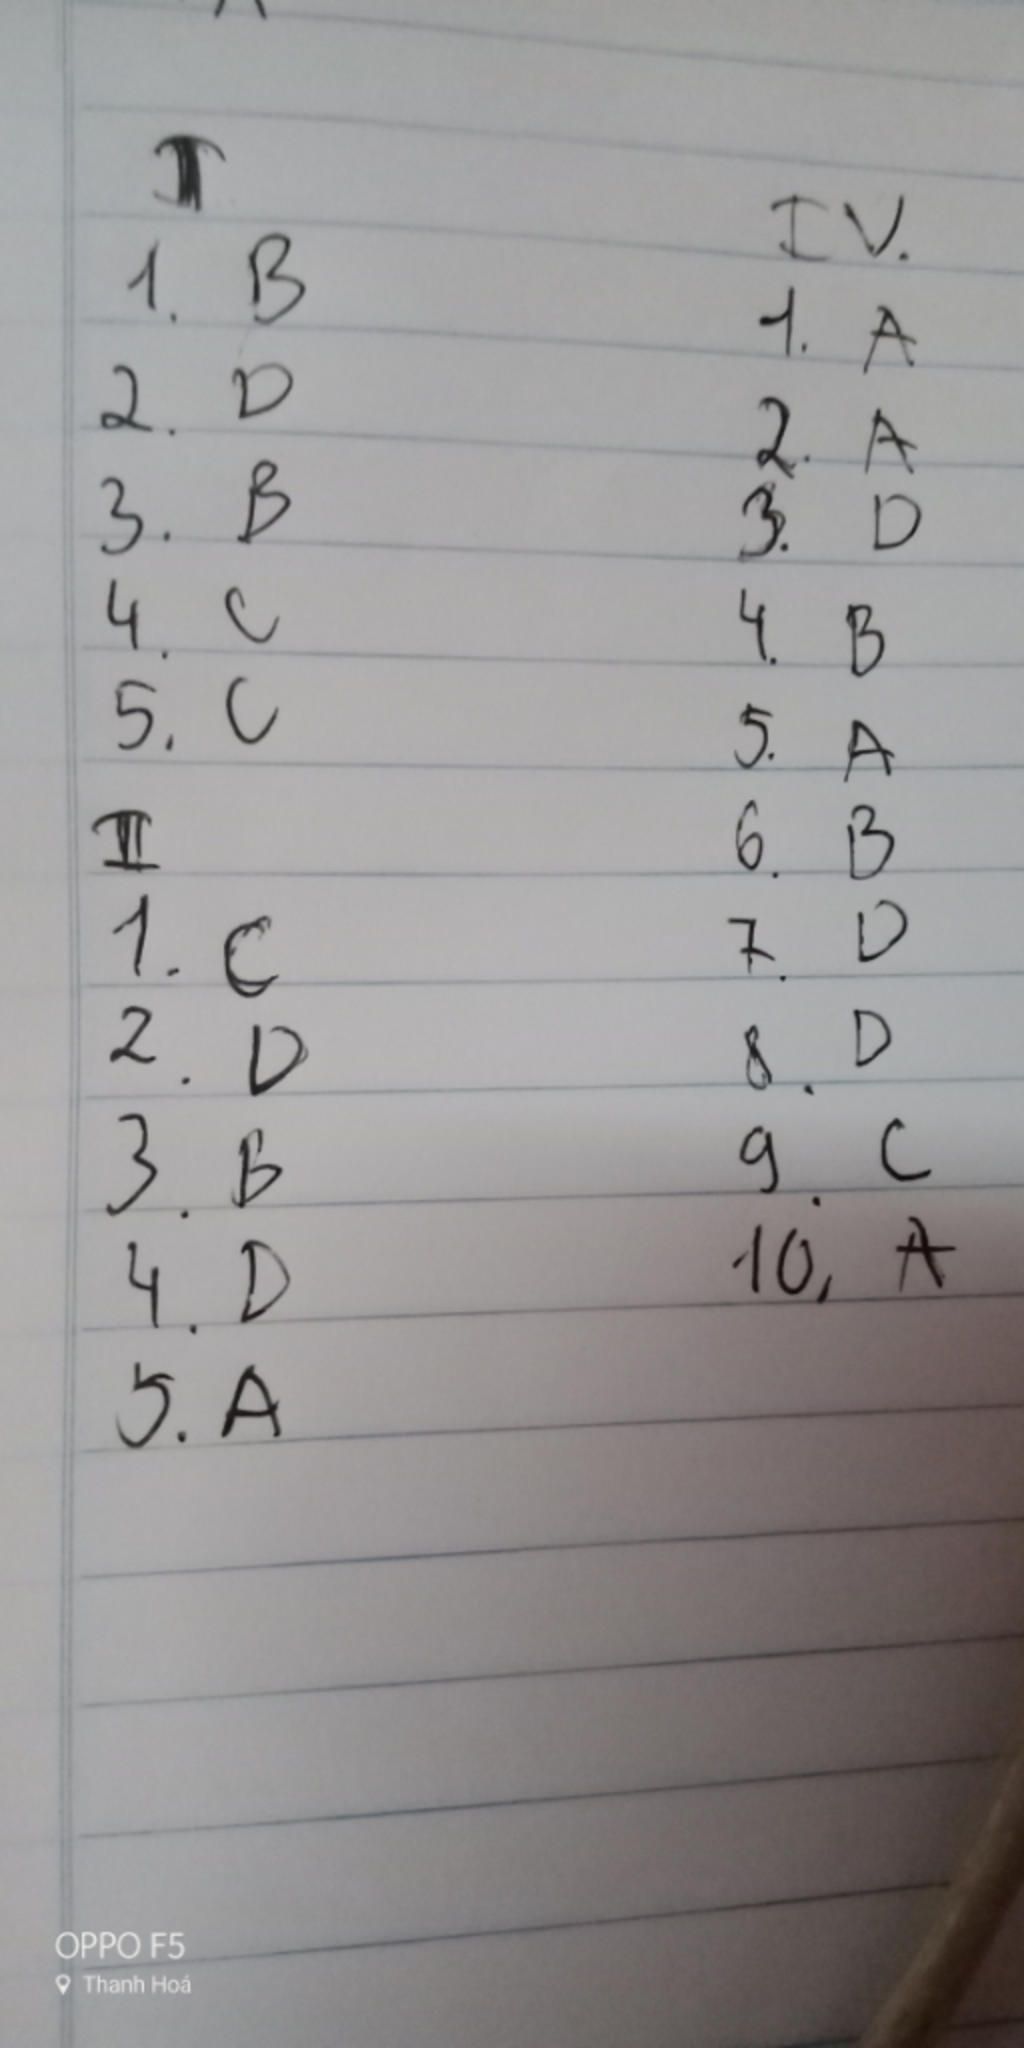 I
1. B
2. D
3. B
4. C
5. C
II
1. C
2. D
3. B
4. D
5. A
IV.
1. A
2. A
3. D
4. B
5. A
6. B
7. D
8. D
9. C
10, A
OPPO F5
Thanh Hoá